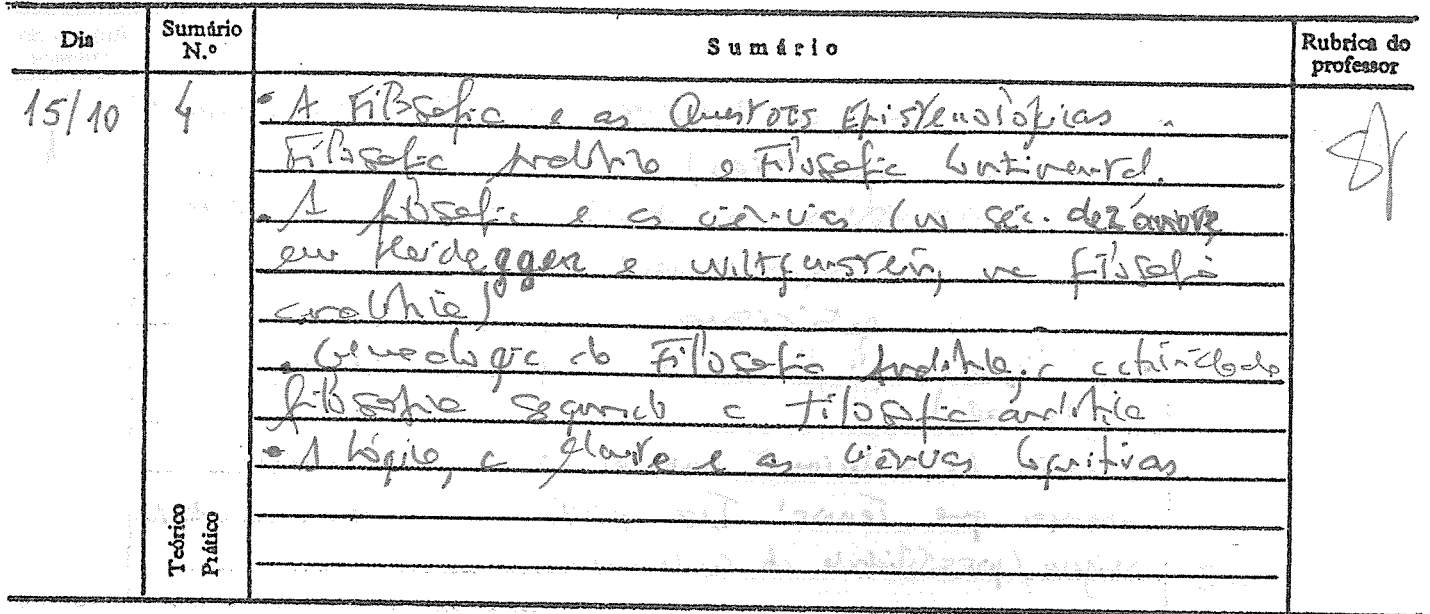 Dia Sumário N.º Sumário Rubrica do professor
15/10 4 • A Filosofia e as Questões Epistemológicas.
Filosofia Analítica e Filosofia Continental.
• A filosofia e as ciências (no séc. dezanove,
em Heidegger e Wittgenstein, na filosofia
analítica)
• Genealogia da Filosofia Analítica; a
filosofia segundo a filosofia analítica
• A Lógica, a Mente e as Ciências Cognitivas
Teórico
Prático